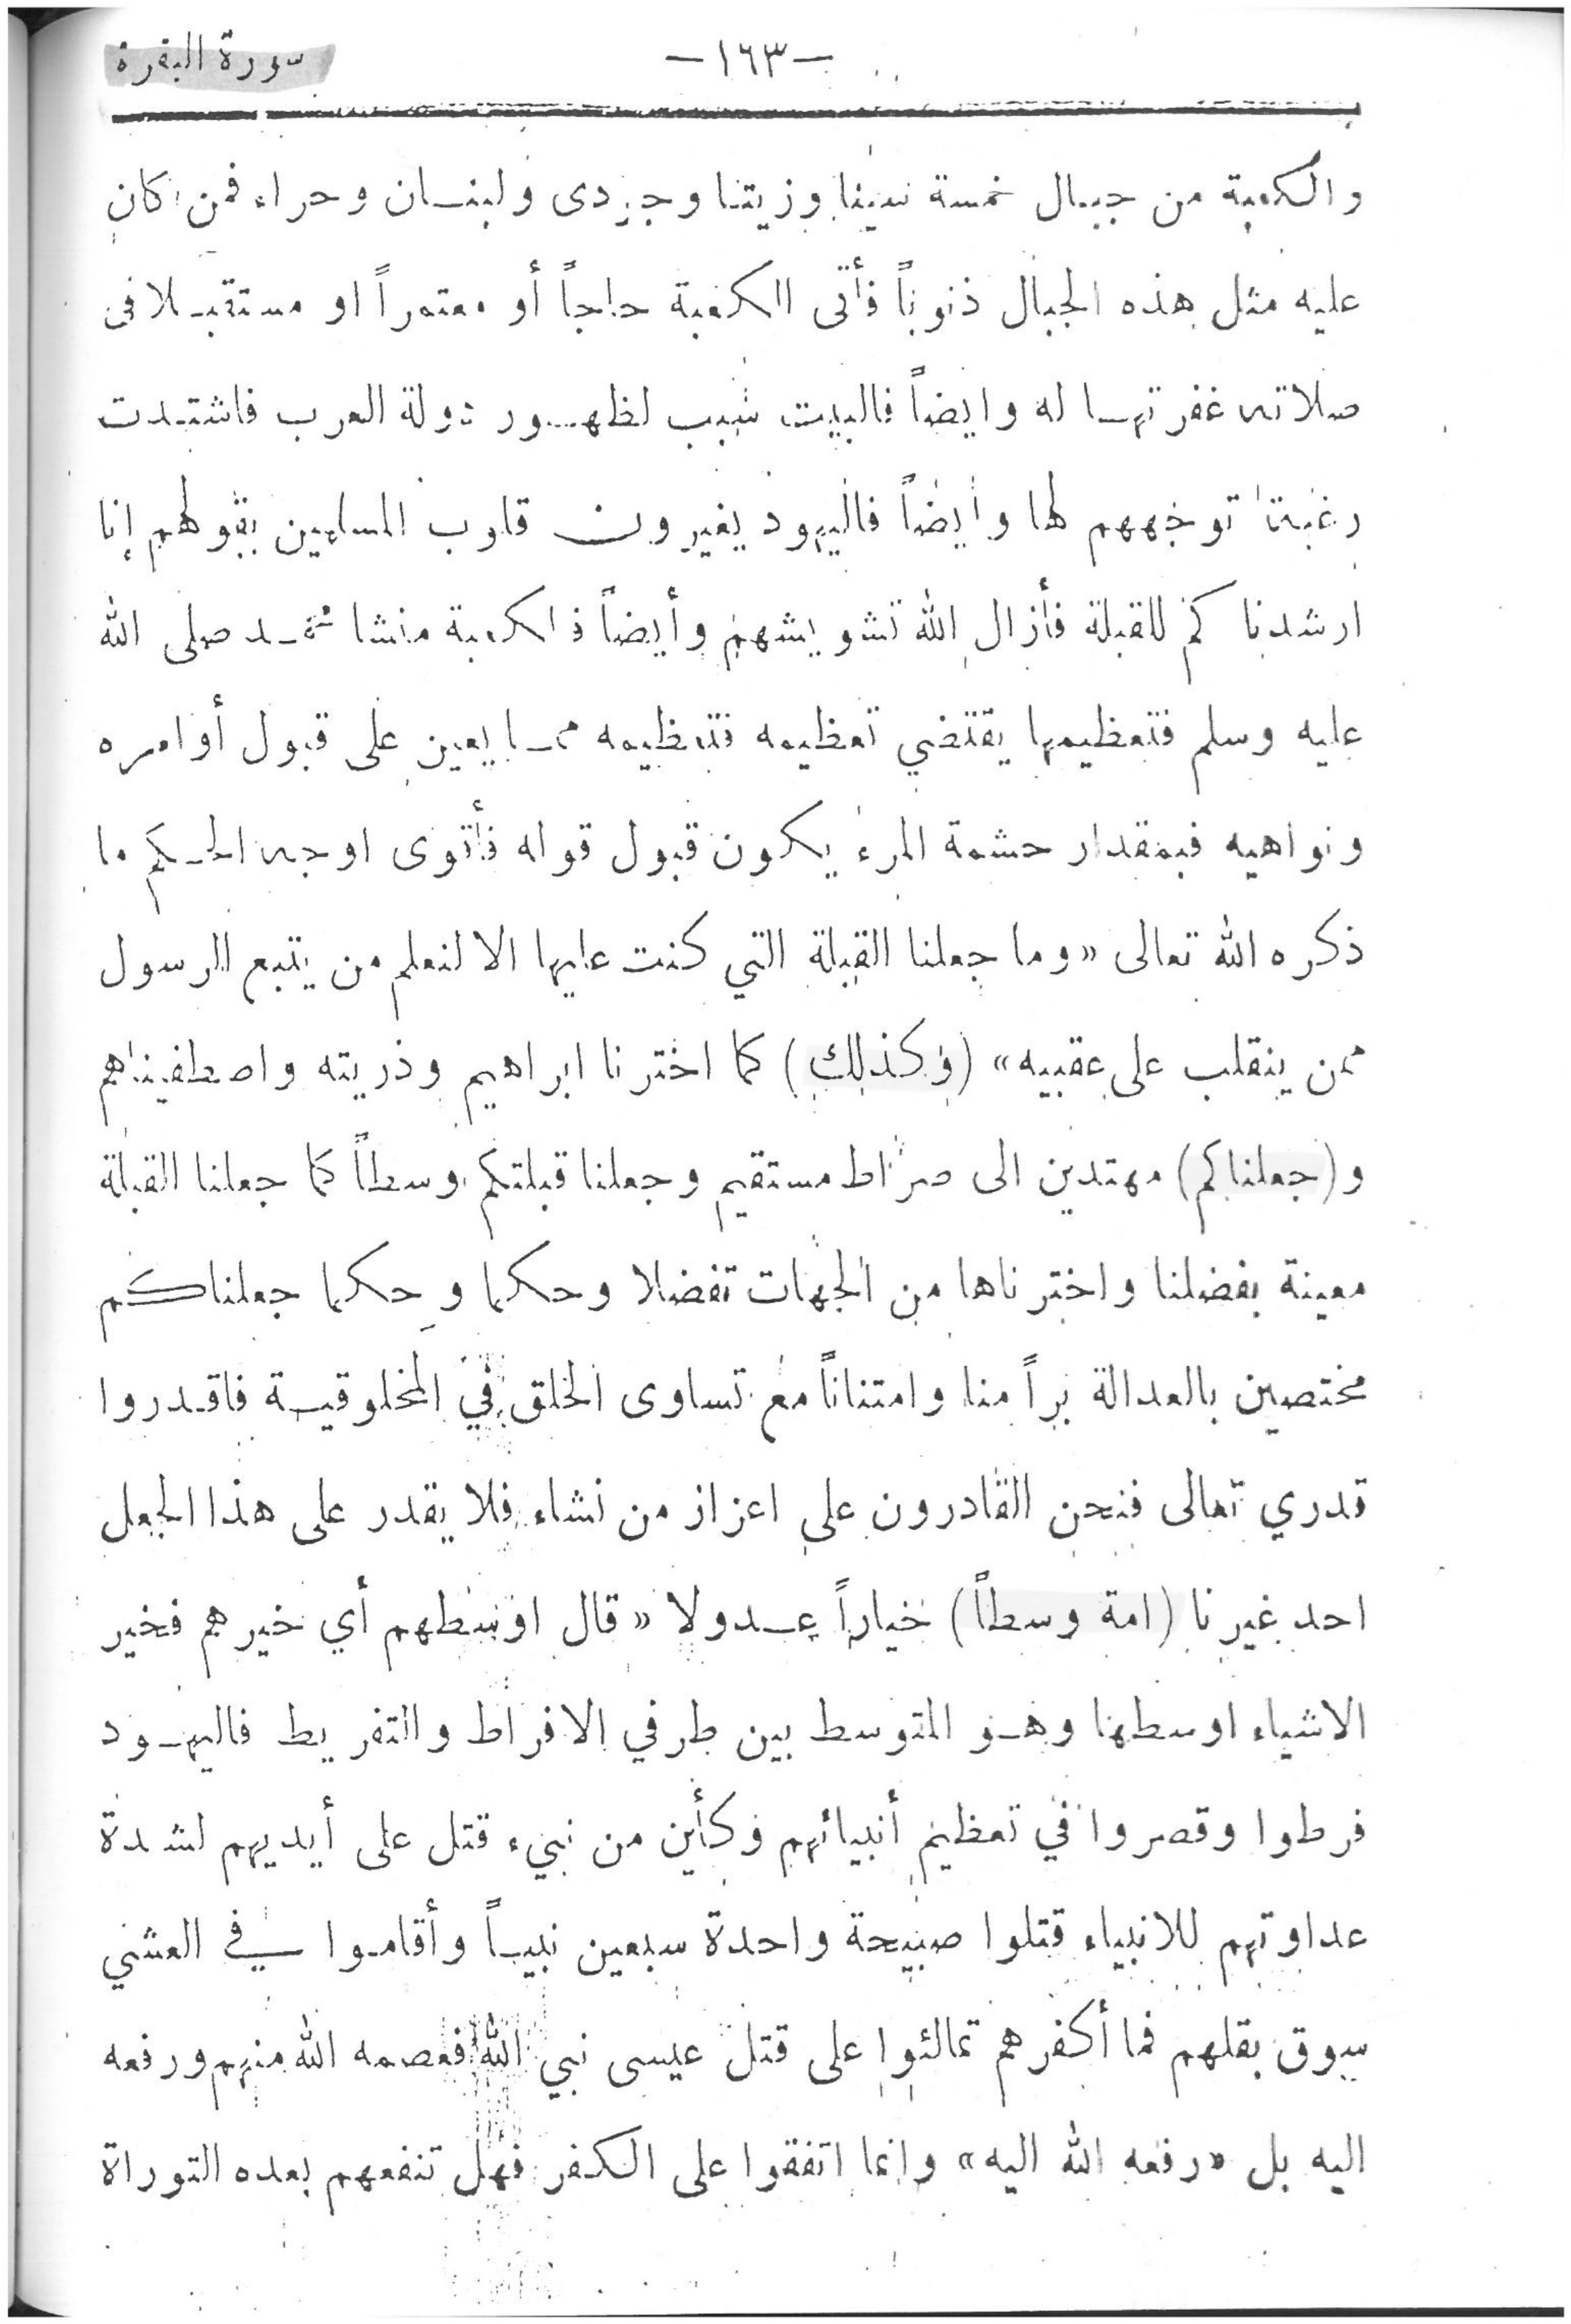 سورة البقرة
—١٦٣—
والكعبة من جبال خمسة سينا وزيتا وجودى ولبنان وحراء فمن كان
عليه مثل هذه الجبال ذنوباً فأتى الكعبة حاجاً أو معتمراً او مستقبلا فى
صلاته غفرتها له وايضاً فالبيت سبب لظهور دولة العرب فاشتدت
رغبة توجههم لها وأيضاً فاليهود يغيرون قلوب المسلمين بقولهم إنا
ارشدناكم للقبلة فأزال الله تشويشهم وأيضاً فالكعبة منشا محمد صلى الله
عليه وسلم فتعظيمها يقتضي تعظيمه فتعظيمه مما يعين على قبول أوامره
ونواهيه فبمقدار حشمة المرء يكون قبول قوله فأقوى اوجه الحكم ما
ذكره الله تعالى «وما جعلنا القبلة التي كنت عليها الا لنعلم من يتبع الرسول
ممن ينقلب على عقبيه» (وكذلك) كما اخترنا ابراهيم وذريته واصطفيناهم
و(جعلناكم) مهتدين الى صراط مستقيم وجعلنا قبلتكم وسطاً كما جعلنا القبلة
معينة بفضلنا واخترناها من الجهات تفضلا وحكما وحكما جعلناكم
مختصين بالعدالة براً منا وامتناناً مع تساوى الخلق في المخلوقية فاقدروا
قدري تعالى فنحن القادرون على اعزاز من نشاء فلا يقدر على هذا الجعل
احد غيرنا (امة وسطاً) خياراً عدولا «قال اوسطهم أي خيرهم فخير
الاشياء اوسطها وهو المتوسط بين طرفي الافراط والتفريط فاليهود
فرطوا وقصروا في تعظيم أنبيائهم فكأين من نبيء قتل على أيديهم لشدة
عداوتهم للانبياء قتلوا صبيحة واحدة سبعين نبيباً وأقاموا في العشي
سوق بقلهم فما أكفرهم تمالئوا على قتل عيسى نبي الله فعصمه الله منهم ورفعه
اليه بل «رفعه الله اليه» وانما اتفقوا على الكفر فهل تنفعهم بعده التوراة